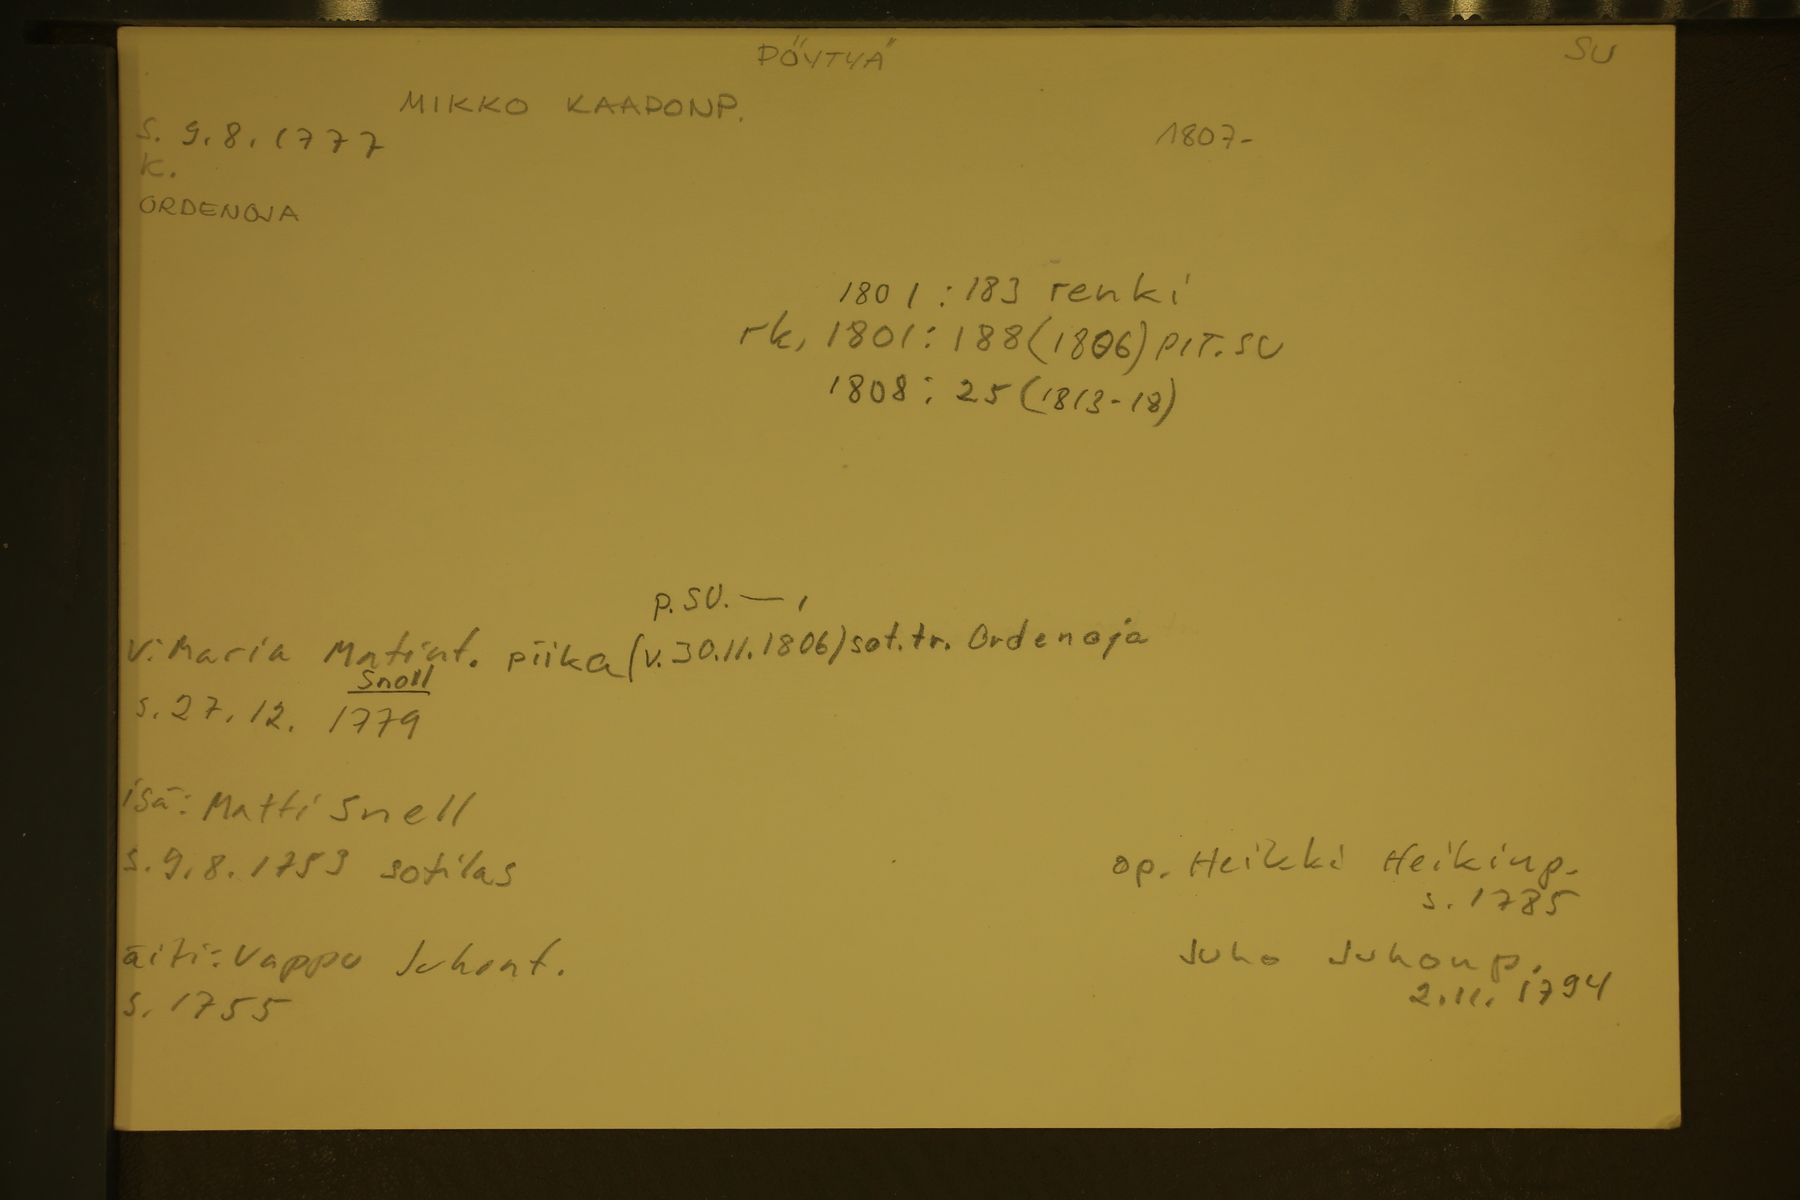 PÖYTYÄ
SU
MIKKO KAAPONP.
s. 9.8.1777
1807-
k.
ORDENOJA
1801:183 renki
rk, 1801:188(1806) PIT.SU
1808:25(1813-18)
p.SU. —,
v:Maria Matint. piika(v.30.11.1806)sot.tr. Ordenoja
Snell
s.27.12. 1779
isä: Matti Snell
s.9.8.1753 sotilas
op. Heikki Heikinp.
s.1785
äiti: Vappu Juhont.
Juho Juhonp.
2.11.1794
s. 1755